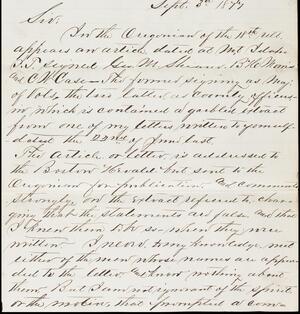 Sept. 3d 1877
Sir:
In the Oregonian of the 18th ult.
appears an article dated at Mt Idaho
I.T. signed Geo M. Shearer, B.
and C. Case — The former signing as Maj
of Vols, the two latter as County officers
in which is contained a garbled extract
from one of my letters written to yourself
dated the 22nd of June last.
The Article or letter, is addressed to
the but sent to the
Oregonian for publication and comments
strongly on the extract referred to, char-
ging that the statements are false and that
I knew them to be so — when they were
written — I never, to my knowledge, met
either of the men whose names are appen-
ded to the letter and know nothing about
them. But I am not ignorant of the spirit
or the motives, that prompted a com-